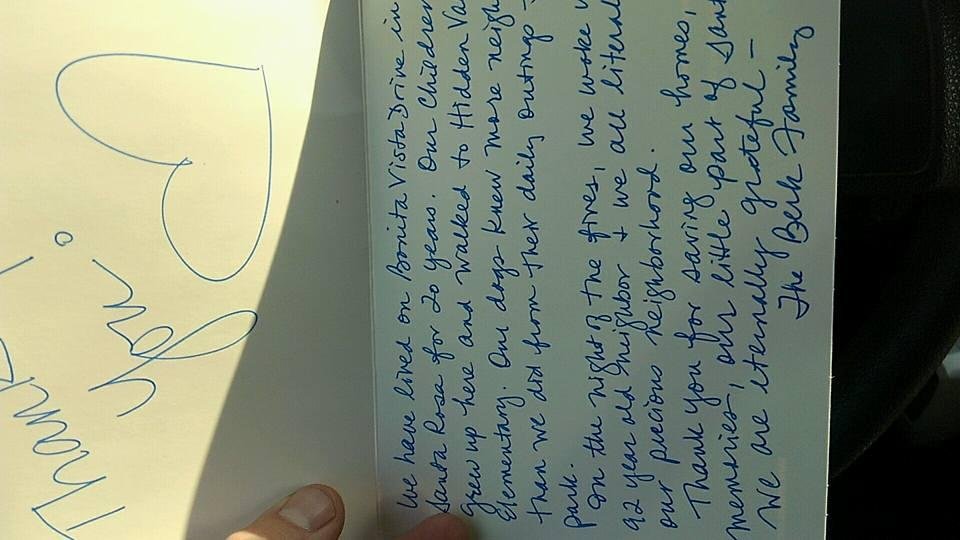 Thank
you!
We have lived on Bonita Vista Drive in
Santa Rosa for 20 years. Our Children
grew up here and walked to Hidden Va
Elementary. Our dogs knew more neigh
than we did from their daily outings -
park.
On the night of the fires, we woke
92 year old neighbor + we all literal
our precious neighborhood.
Thank you for saving our homes,
memories, our little part of Sant
We are eternally grateful -
The Berk Family